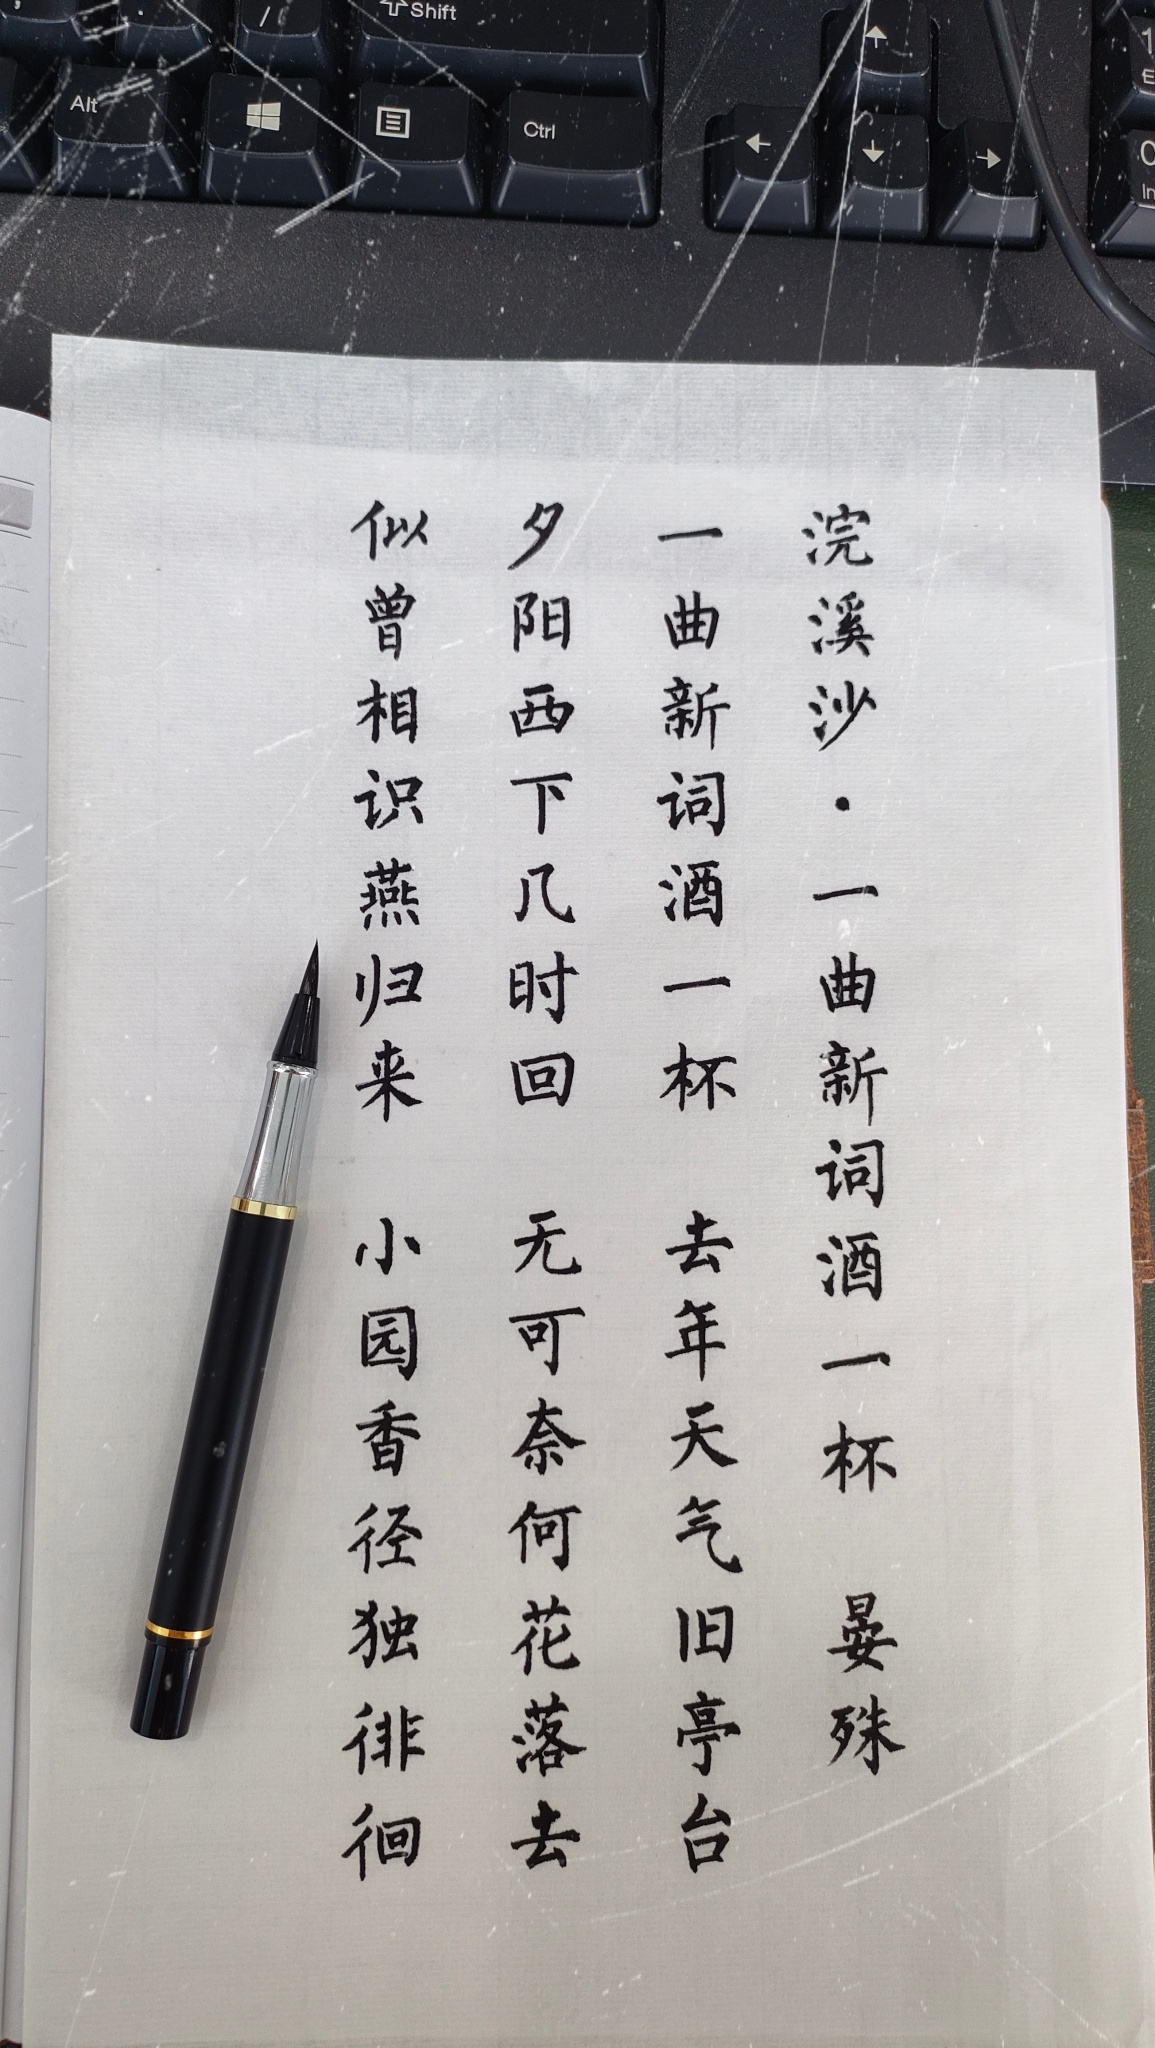 Shift
Alt
Ctrl
浣溪沙·一曲新词酒一杯 晏殊
一曲新词酒一杯 去年天气旧亭台
夕阳西下几时回 无可奈何花落去
似曾相识燕归来 小园香径独徘徊